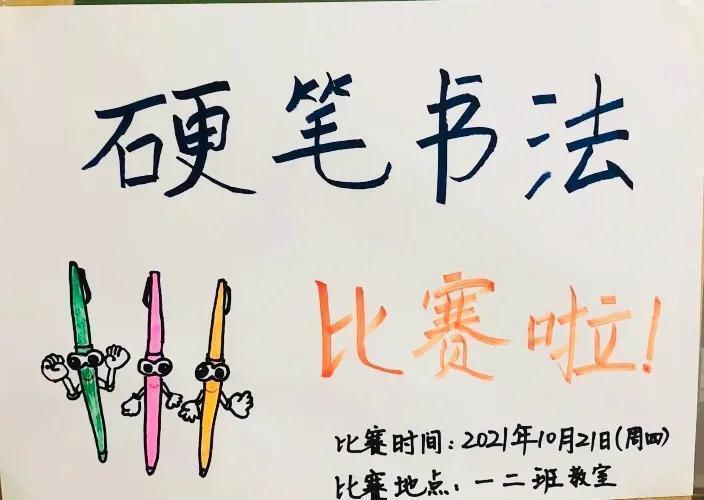 硬笔书法
比赛啦!
比赛时间:2021年10月21日(周四)
比赛地点:一二班教室